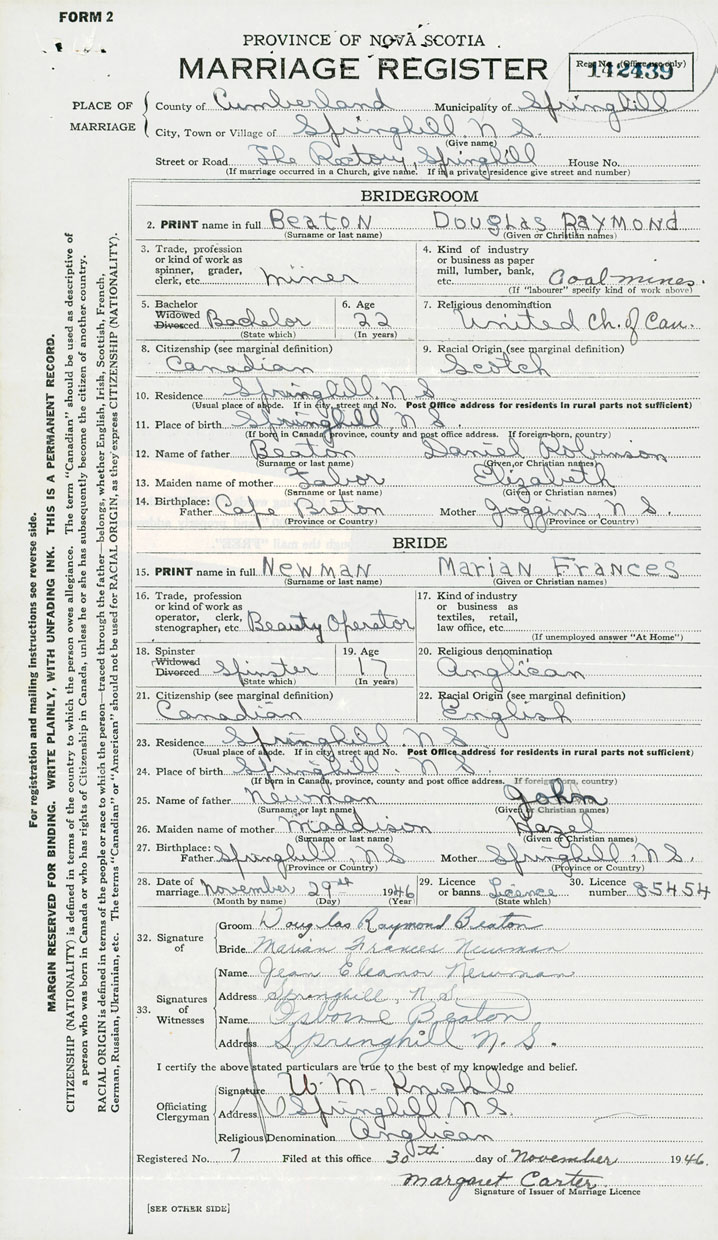 FORM 2
PROVINCE OF NOVA SCOTIA
MARRIAGE REGISTER
Reg. No. (Office use only)
142439
PLACE OF MARRIAGE
County of Cumberland Municipality of Springhill
City, Town or Village of Springhill, N S.
(Give name)
Street or Road The Rectory, Springhill House No.
(If marriage occurred in a Church, give name. If in a private residence give street and number)
BRIDEGROOM
2. PRINT name in full BEATON DOUGLAS RAYMOND
(Surname or last name) (Given or Christian names)
3. Trade, profession or kind of work as spinner, grader, clerk, etc. miner
4. Kind of industry or business as paper mill, lumber, bank, etc. Coal mines.
(If "labourer" specify kind of work above)
5. Bachelor Widowed Divorced Bachelor
(State which)
6. Age 22
(In years)
7. Religious denomination
United Ch. of Can.
8. Citizenship (see marginal definition)
Canadian
9. Racial Origin (see marginal definition)
Scotch
10. Residence Springhill, N S
(Usual place of abode. If in city, street and No. Post Office address for residents in rural parts not sufficient)
11. Place of birth Springhill, N S.
(If born in Canada, province, county and post office address. If foreign-born, country)
12. Name of father Beaton Daniel Robinson
(Surname or last name) (Given or Christian names)
13. Maiden name of mother Elizabeth
(Surname or last name) (Given or Christian names)
14. Birthplace: Father Cape Breton Mother Joggins, N S.
(Province or Country) (Province or Country)
BRIDE
15. PRINT name in full NEWMAN MARIAN FRANCES
(Surname or last name) (Given or Christian names)
16. Trade, profession or kind of work as operator, clerk, stenographer, etc. Beauty Operator
17. Kind of industry or business as textiles, retail, law office, etc.
(If unemployed answer "At Home")
18. Spinster Widowed Divorced Spinster
(State which)
19. Age 17
(In years)
20. Religious denomination
Anglican
21. Citizenship (see marginal definition)
Canadian
22. Racial Origin (see marginal definition)
English
23. Residence Springhill, N S
(Usual place of abode. If in city, street and No. Post Office address for residents in rural parts not sufficient)
24. Place of birth Springhill, N S
(If born in Canada, province, county and post office address. If foreign-born, country)
25. Name of father Newman John
(Surname or last name) (Given or Christian names)
26. Maiden name of mother Maddison Hazel
(Surname or last name) (Given or Christian names)
27. Birthplace: Father Springhill, N S Mother Springhill, N S.
(Province or Country) (Province or Country)
28. Date of marriage November 29th 1946
(Month by name) (Day) (Year)
29. Licence or banns Licence
(State which)
30. Licence number 85454
32. Signature of
Groom Douglas Raymond Beaton
Bride Marian Frances Newman
33. Signatures of Witnesses
Name Jean Eleanor Newman
Address Springhill, N.S.
Name Osborne Beaton
Address Springhill N. S.
I certify the above stated particulars are true to the best of my knowledge and belief.
Officiating Clergyman
Signature W. M.
Address Springhill N S.
Religious Denomination Anglican
Registered No. 7 Filed at this office 30th day of November 1946.
Margaret Carter
Signature of Issuer of Marriage Licence
[SEE OTHER SIDE]
For registration and mailing instructions see reverse side.
MARGIN RESERVED FOR BINDING. WRITE PLAINLY, WITH UNFADING INK. THIS IS A PERMANENT RECORD.
CITIZENSHIP (NATIONALITY) is defined in terms of the country to which the person owes allegiance. The term "Canadian" should be used as descriptive of
a person who was born in Canada or who has rights of Citizenship in Canada, unless he or she has subsequently become the citizen of another country.
RACIAL ORIGIN is defined in terms of the people or race to which the person—traced through the father—belongs, whether English, Irish, Scottish, French,
German, Russian, Ukrainian, etc. The terms "Canadian" or "American" should not be used for RACIAL ORIGIN, as they express CITIZENSHIP (NATIONALITY).